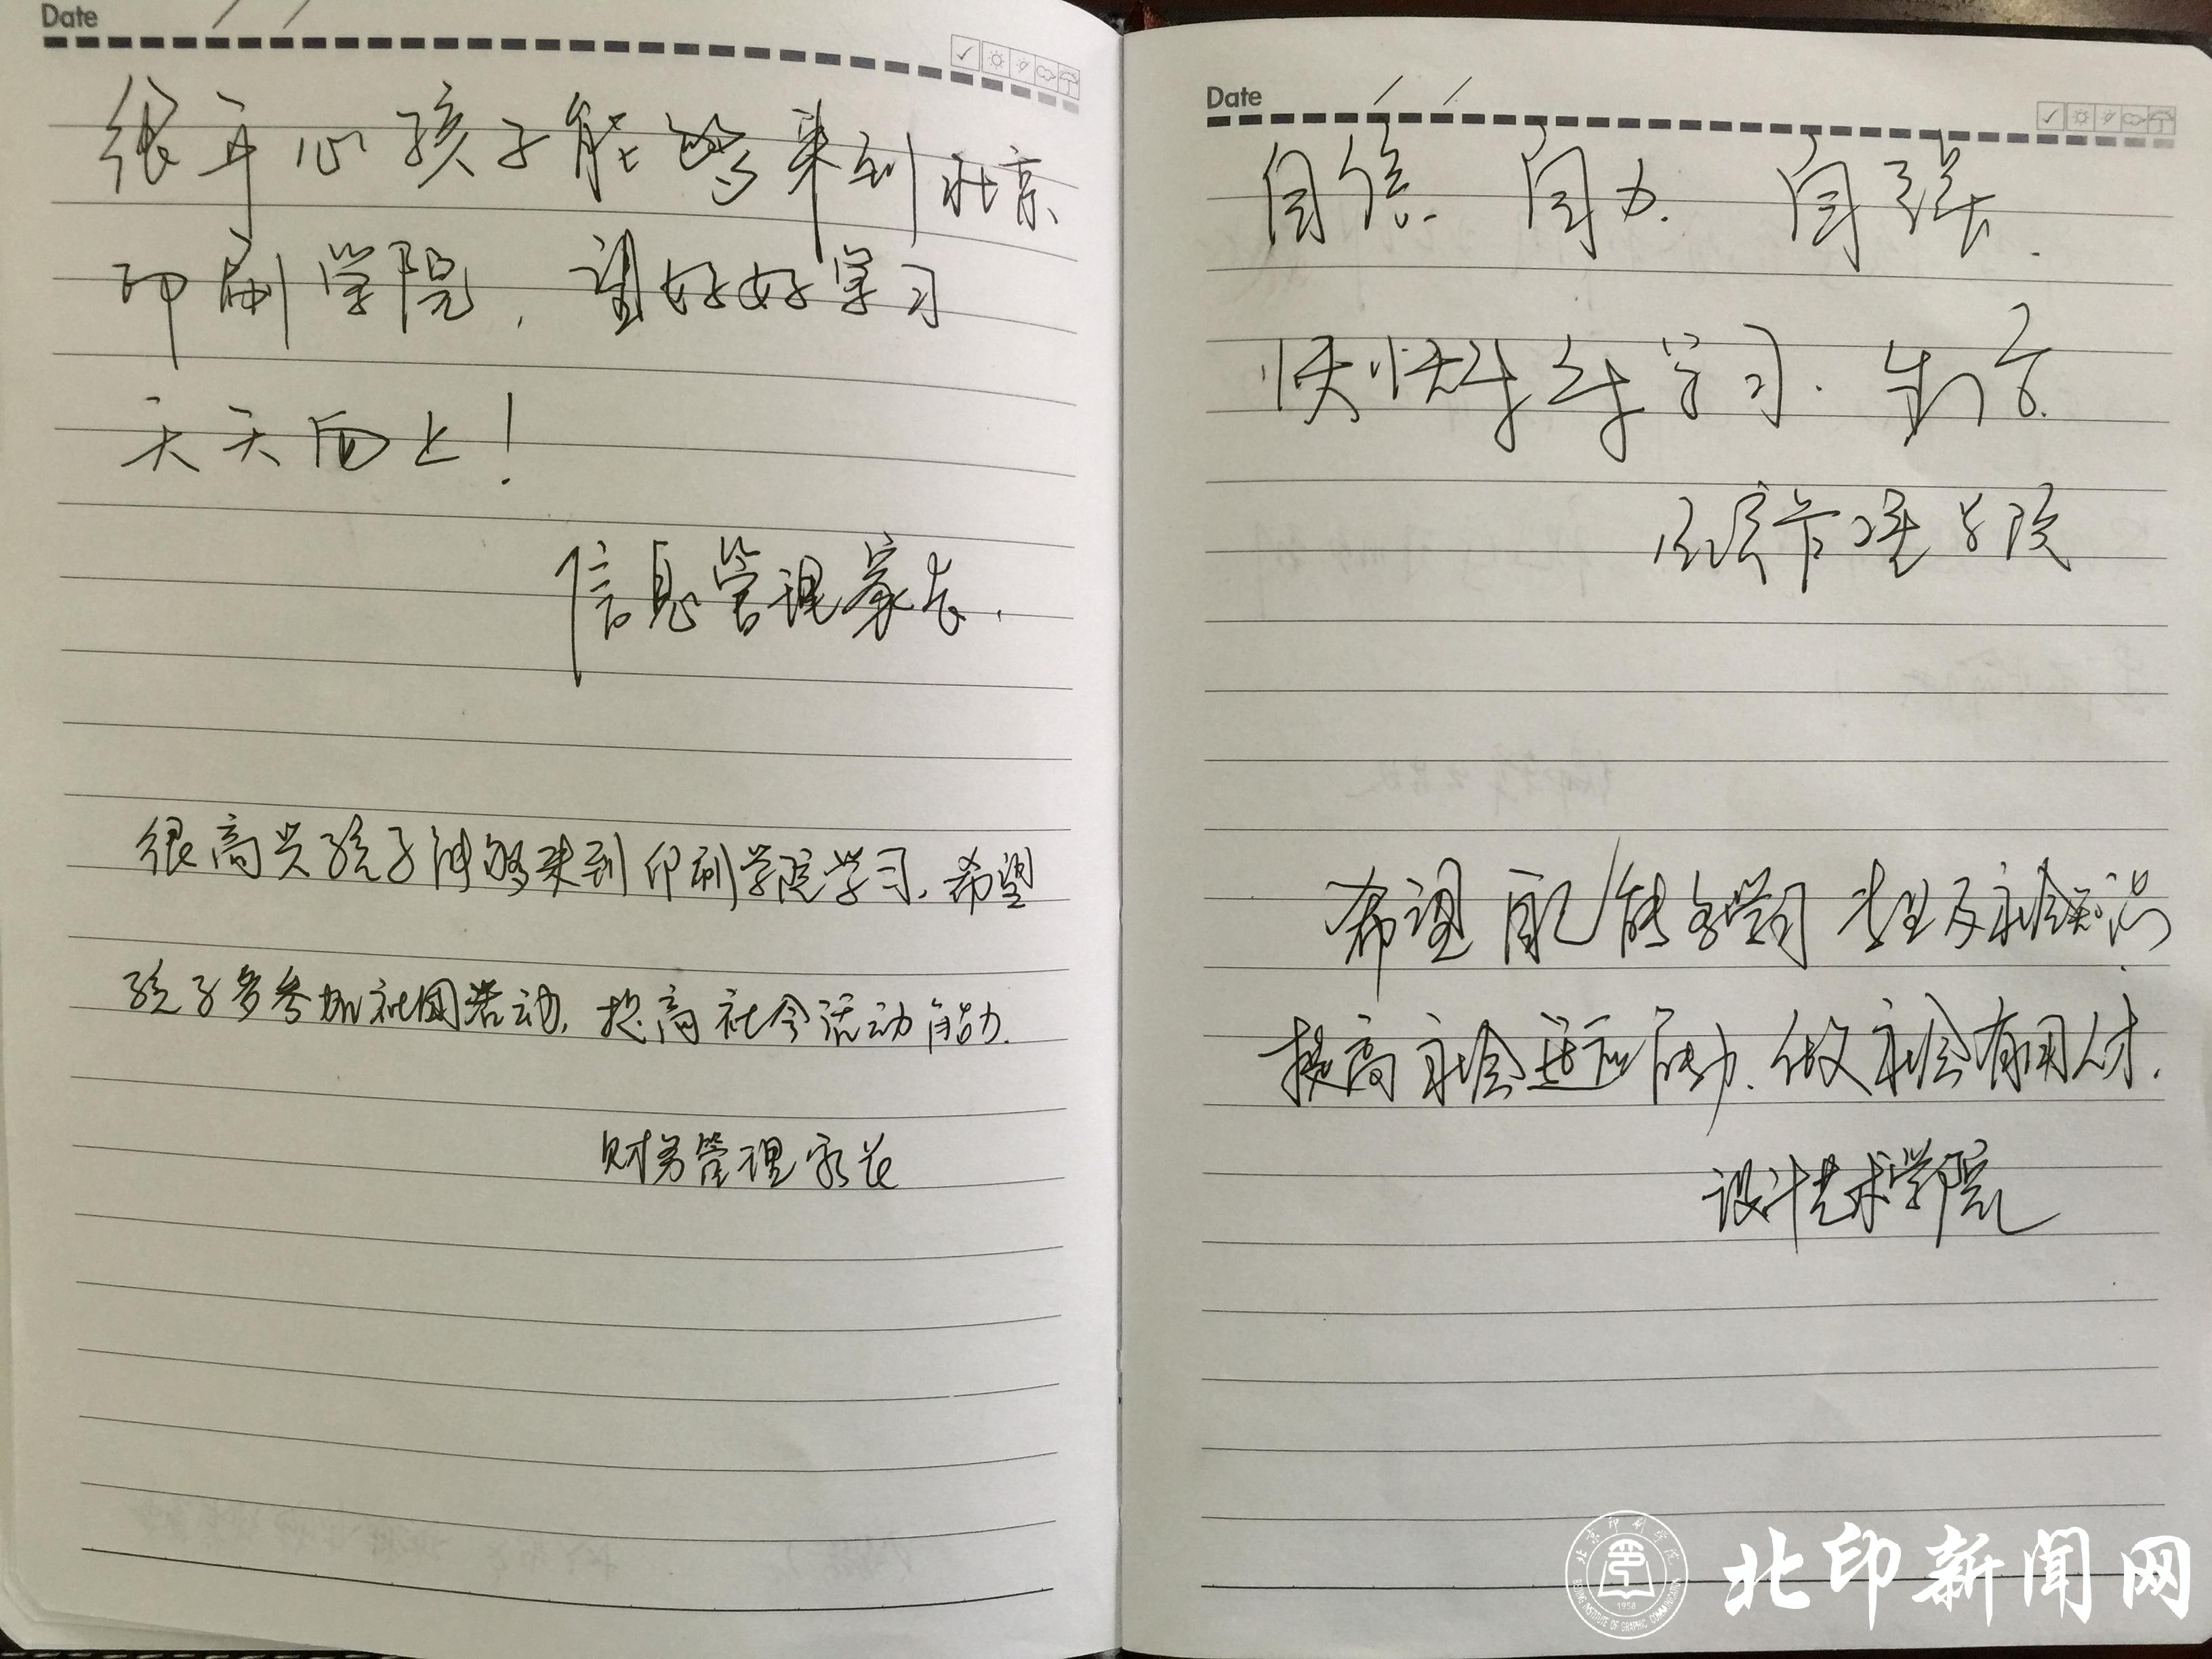 Date
很开心孩子能够来到北京
印刷学院,望好好学习
天天向上!
信息管理家长.
很高兴孩子能够来到印刷学院学习,希望
孩子多参加社团活动,提高社会活动能力.
财务管理家长
Date
自信. 自力. 自强.
快快乐乐学习.
管理学院
希望自己能多学习专业及社会知识
提高社会适应能力.做社会有用人才.
设计艺术学院
北京印刷学院
BEIJING INSTITUTE OF GRAPHIC COMMUNICATION
1958
北印新闻网